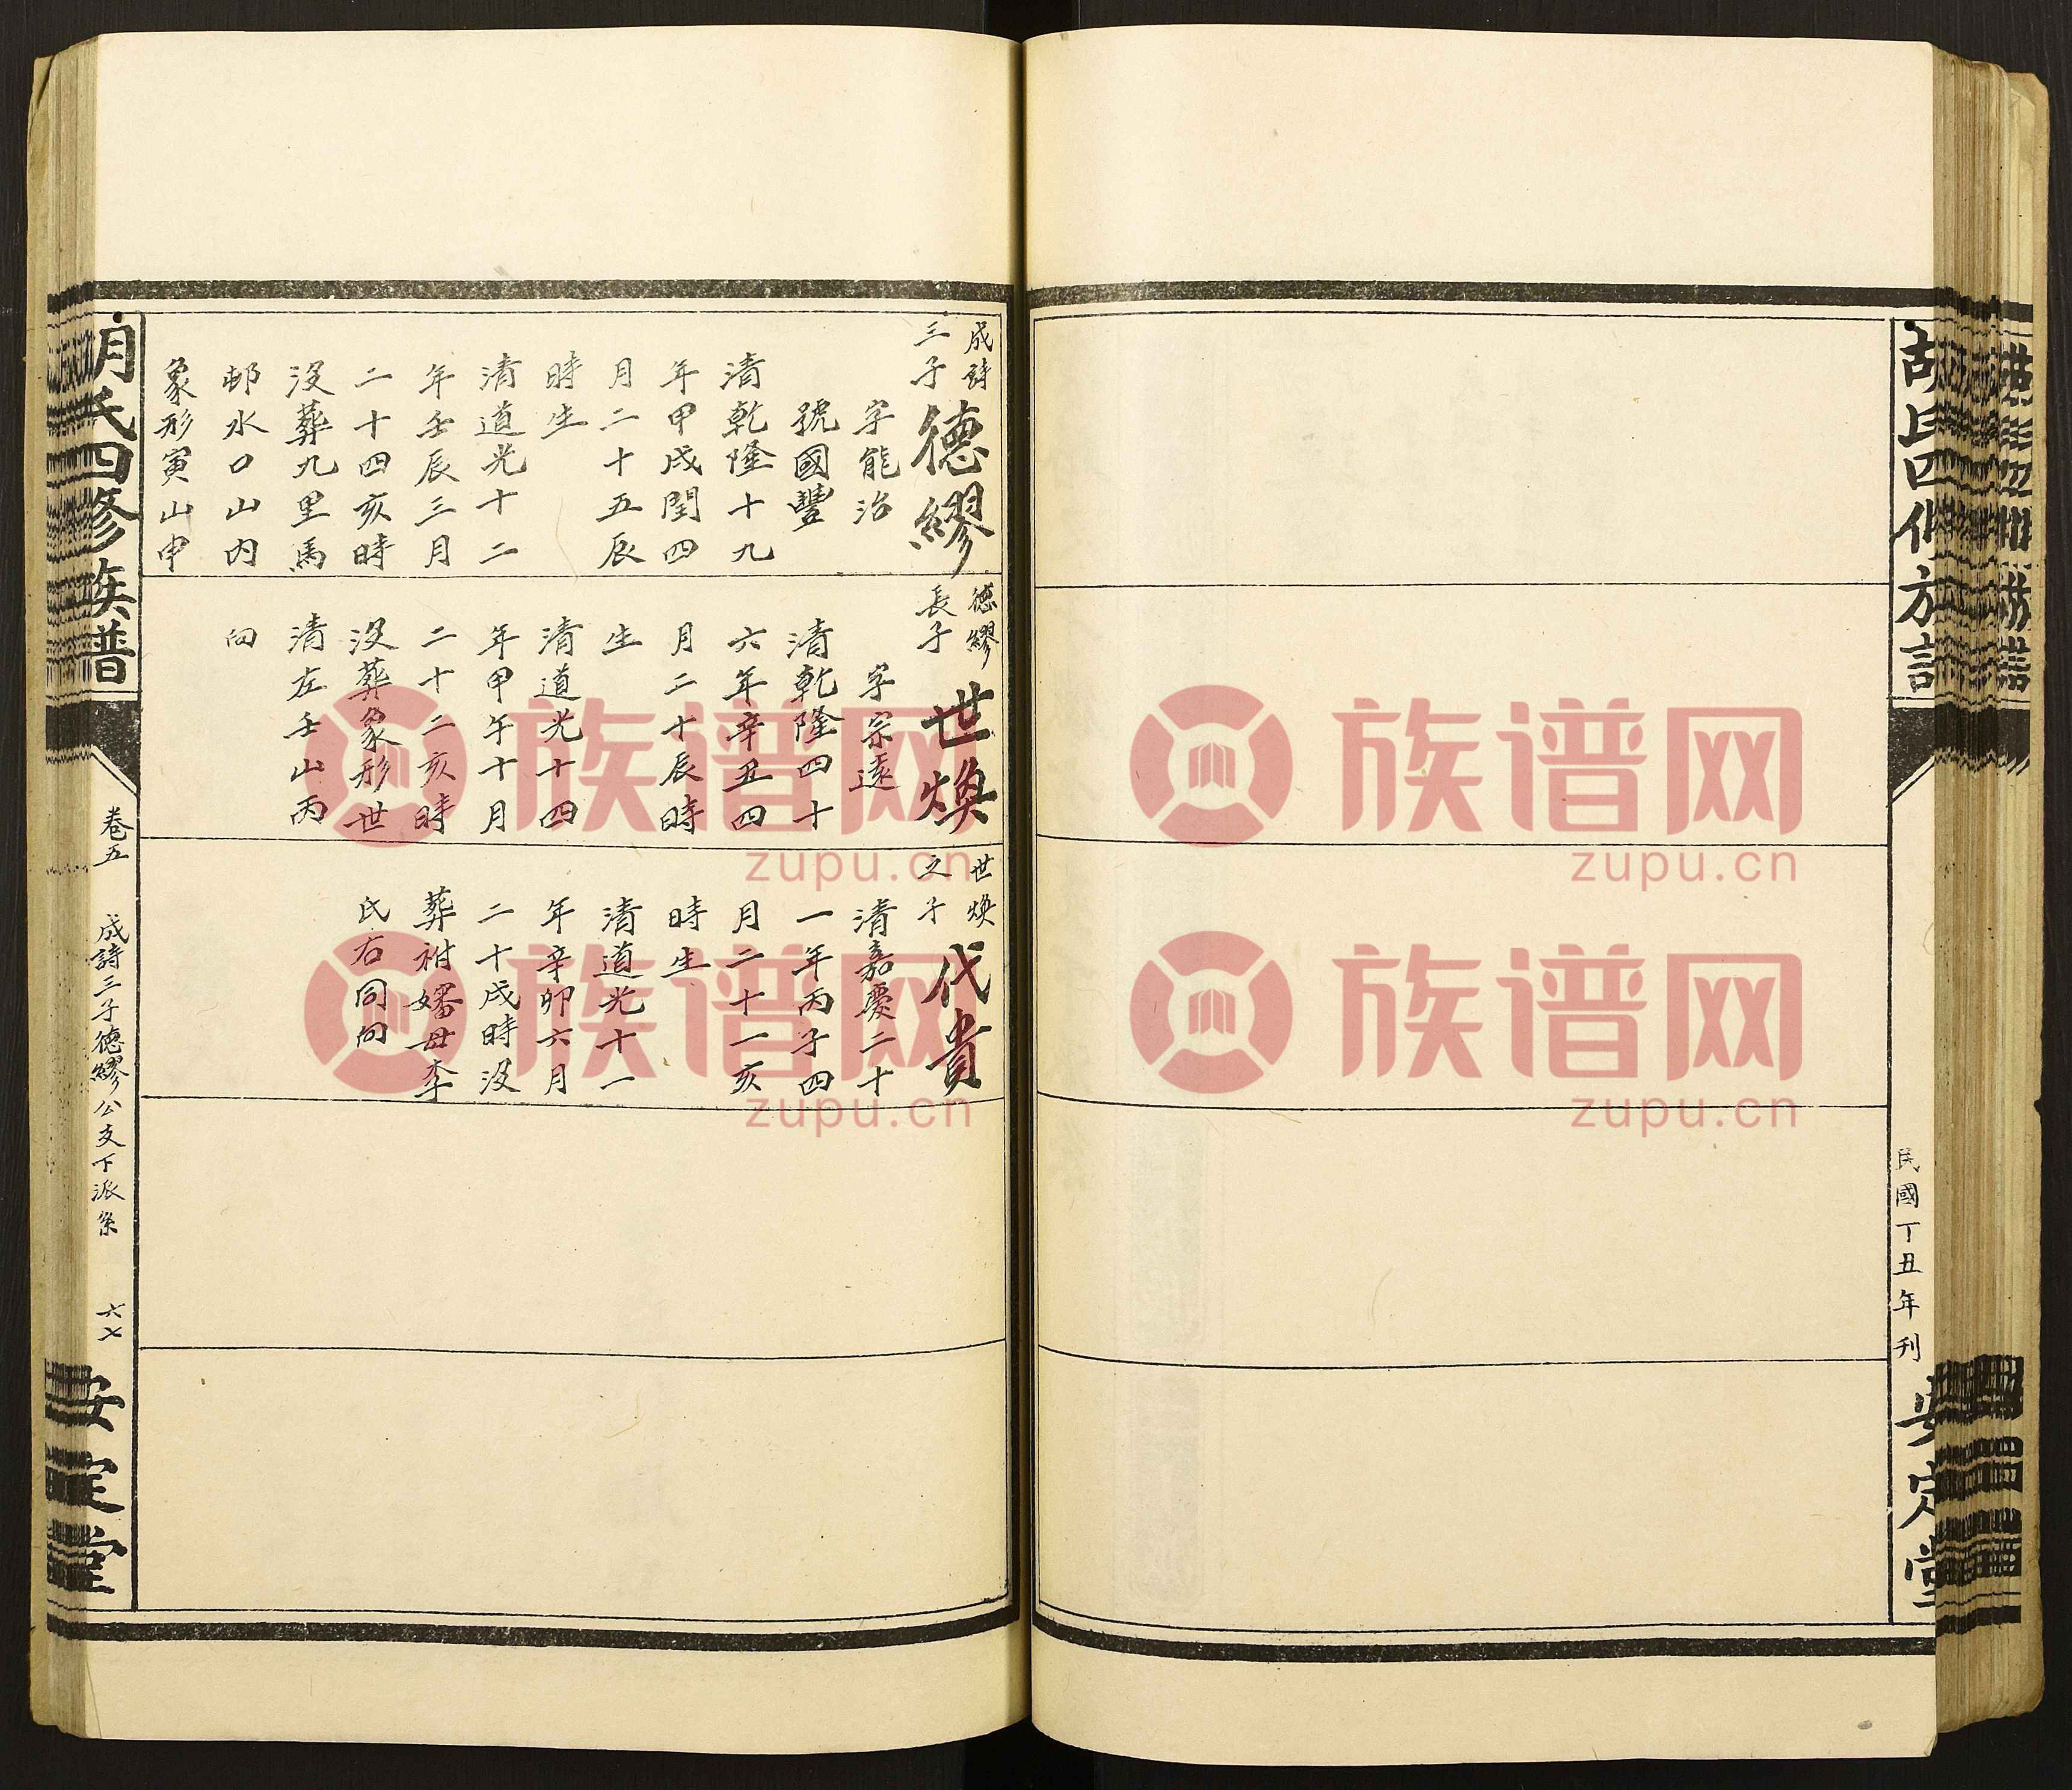 胡氏四修族譜
民國丁丑年刊
安定堂
成詩
三子
德繆
字能治
號國豐
清乾隆十九
年甲戌閏四
月二十五辰
時生
清道光十二
年壬辰三月
二十四亥時
沒葬九里馬
邨水口山內
象形寅山申
向
德繆
長子
世煥
字宗遠
清乾隆四十
六年辛丑四
月二十辰時
生
清道光十四
年甲午十月
二十二亥時
沒葬象形世
清左壬山丙
世煥
之子
代貴
清嘉慶二十
一年丙子四
月二十一亥
時生
清道光十一
年辛卯六月
二十戌時沒
葬祔嬸母李
氏右同向
胡氏四修族譜
卷五
成詩三子德繆公支下派系
六七
安定堂
族谱网
zupu.cn
族谱网
zupu.cn
族谱网
zupu.cn
族谱网
zupu.cn